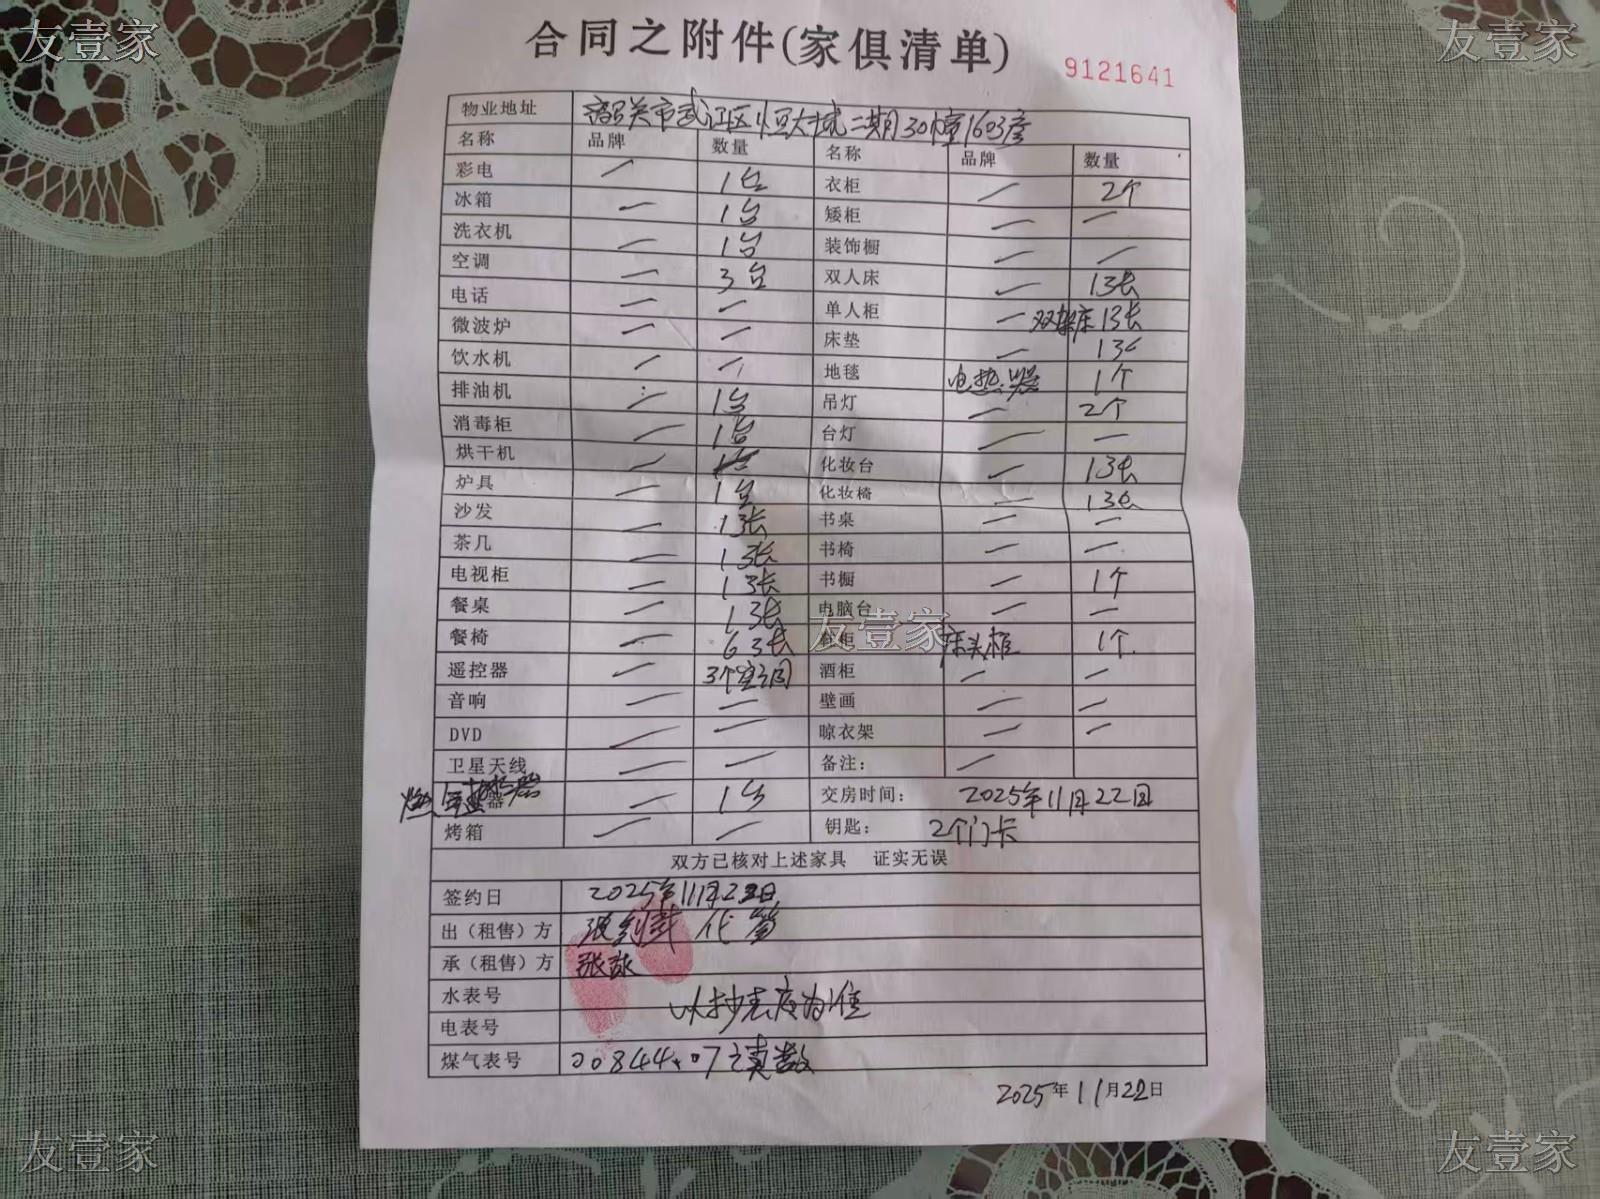 友壹家
友壹家
合同之附件(家俱清单)
9121641
物业地址 韶关市武江区恒大城二期30幢1603房
名称 品牌 数量 名称 品牌 数量
彩电 1台 衣柜 2个
冰箱 1台 矮柜
洗衣机 1台 装饰橱
空调 3台 双人床 1张
电话 单人柜 双架床 1张
微波炉 床垫 1张
饮水机 地毯 电热器 1个
排油机 1台 吊灯 2个
消毒柜 1台 台灯
烘干机 化妆台 1张
炉具 1台 化妆椅 1张
沙发 1张 书桌
茶几 1张 书椅
电视柜 1张 书橱 1个
餐桌 1张 电脑台
友壹家
餐椅 6张 床头柜 1个
遥控器 3个空调 酒柜
音响 壁画
DVD 晾衣架
卫星天线 备注:
器 1台 交房时间: 2025年11月22日
烤箱 钥匙: 2个门卡
双方已核对上述家具 证实无误
签约日 2025年11月22日
出(租售)方 代签
承(租售)方
水表号 以抄表度为准
电表号
煤气表号 00844.07读数
2025年11月22日
友壹家
友壹家